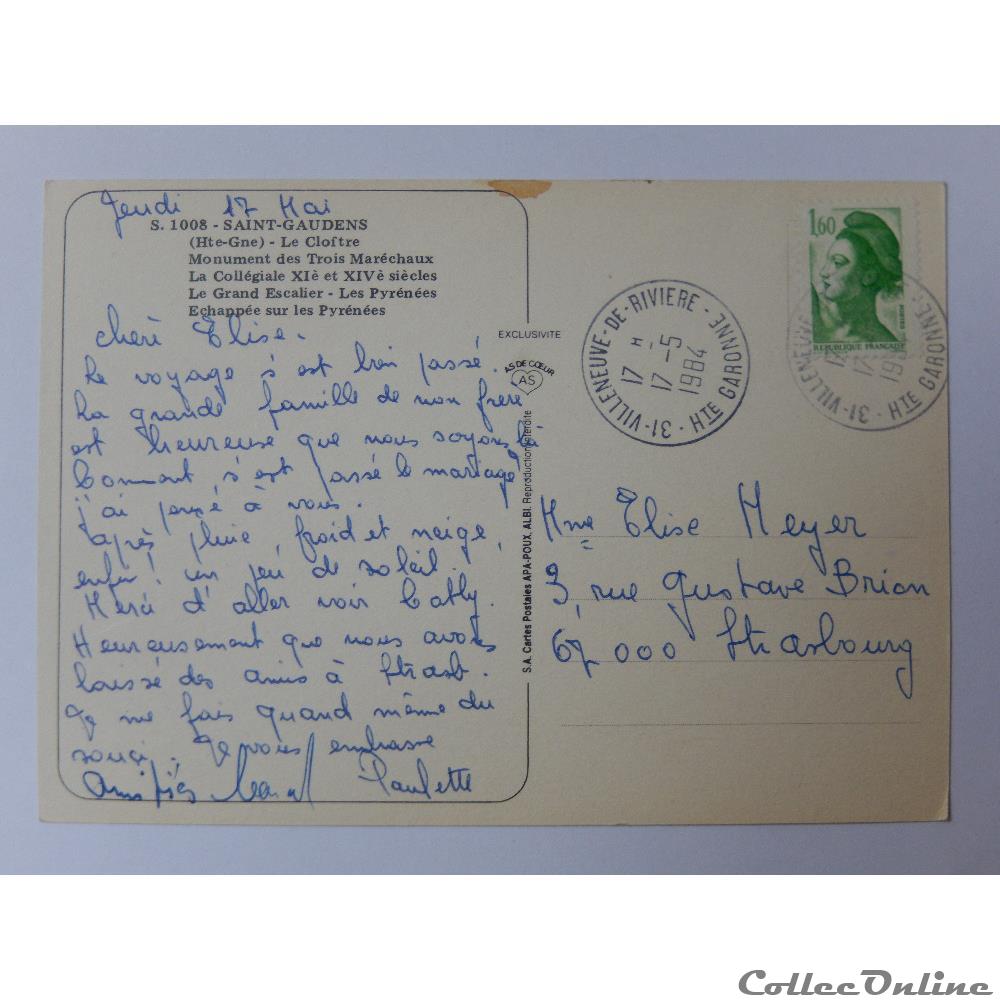 Jeudi 17 Mai
S. 1008 - SAINT-GAUDENS
(Hte-Gne) - Le Cloftre
Monument des Trois Maréchaux
La Collégiale XIè et XIVè siècles
Le Grand Escalier - Les Pyrénées
Echappée sur les Pyrénées
chère Elise.
Le voyage s'est bien passé.
La grande famille de mon frère
est heureuse que nous soyons là
Comment s'est passé le mariage
j'ai pensé à vous.
après pluie, froid et neige,
enfin! un peu de soleil.
Merci d'aller voir Cathy.
Heureusement que nous avons
laissé des amis à Strasb.
Je me fais quand même du
souci. Je vous embrasse
Amitiés Marcel Paulette
EXCLUSIVITE
AS DE CŒUR
AS
S.A. Cartes Postales APA-POUX, ALBI. Reproduction interdite
31-VILLENEUVE-DE-RIVIERE - HTE GARONNE -
17 H
17 -5
1984
1,60
REPUBLIQUE FRANÇAISE
31-VILLENEUVE
HTE GARONNE-
Mme Elise Meyer
3, rue Gustave Brion
67000 Strasbourg
CollecOnline